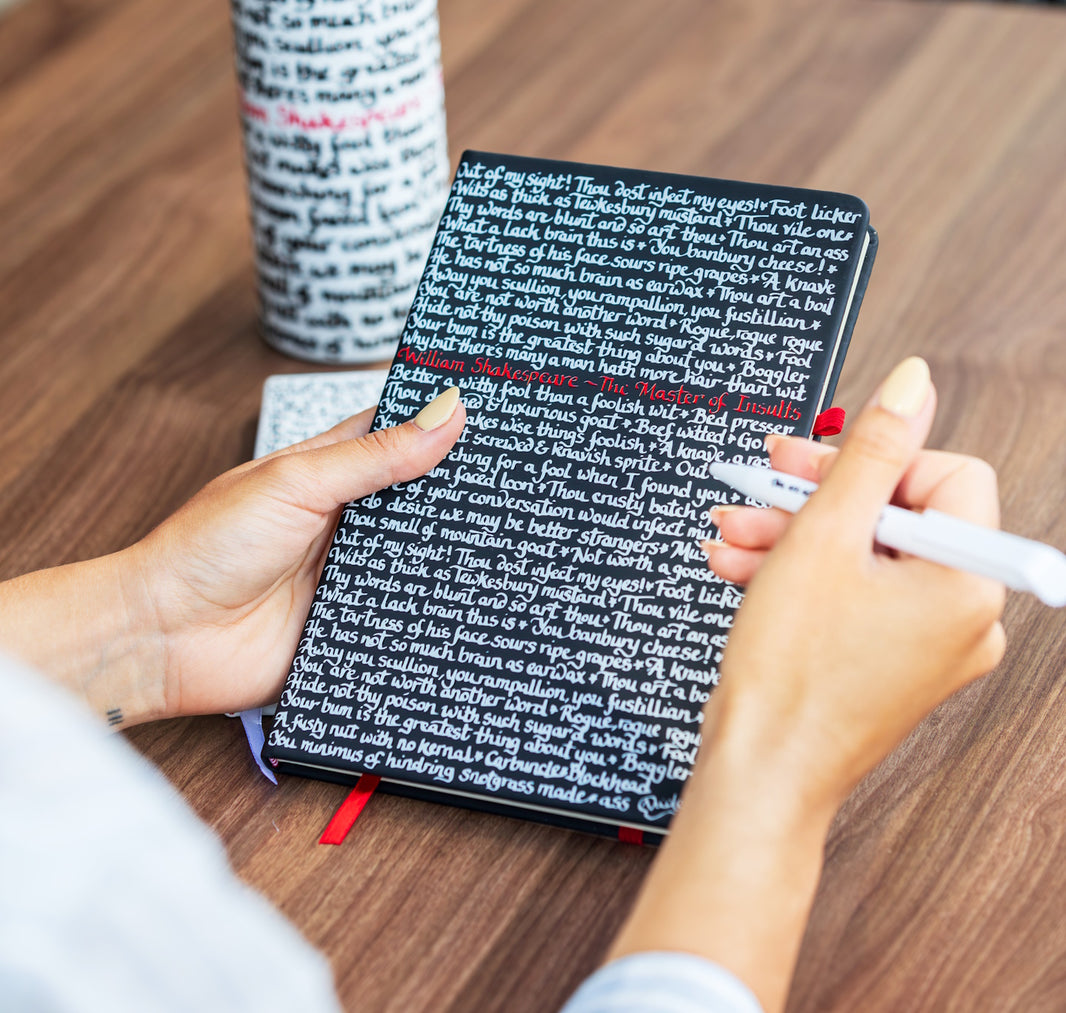 not so much brain
scullion, you
is the greatest
there's many a man
Shakespeare
a witty fool than
makes wise things
searching for a
faced
of your conversation
we may be
of mountain
with no
Out of my sight! Thou dost infect my eyes! * Foot licker
Wits as thick as Tewkesbury mustard * Thou vile one *
Thy words are blunt and so art thou * Thou art an ass
What a lack brain this is * You banbury cheese! *
The tartness of his face sours ripe grapes * A knave
He has not so much brain as earwax * Thou art a boil
Away you scullion, you rampallion, you fustillian *
You are not worth another word * Rogue, rogue rogue
Hide not thy poison with such sugar'd words * Fool
Your bum is the greatest thing about you * Boggler
Why but there's many a man hath more hair than wit
William Shakespeare ~ The Master of Insults
Better a witty fool than a foolish wit * Bed presser
Thou d & luxurious goat * Beef witted * Go
Your akes wise things foolish * A knave, a ras
t screwed & knavish sprite * Out
ching for a fool when I found you * ass
am faced loon * Thou crusty batch o
e of your conversation would infect my
I do desire we may be better strangers * Mus
Thou smell of mountain goat * Not worth a goose
Out of my sight! Thou dost infect my eyes! * Foot licke
Wits as thick as Tewkesbury mustard * Thou vile one
Thy words are blunt and so art thou * Thou art an as
What a lack brain this is * You banbury cheese! *
The tartness of his face sours ripe grapes * A knave
He has not so much brain as earwax * Thou art a bo
Away you scullion, you rampallion, you fustillian *
You are not worth another word * Rogue, rogue rogu
Hide not thy poison with such sugar'd words * Foo
Your bum is the greatest thing about you * Boggler
A fusty nut with no kernal * Carbuncle * Blockhead
You minimus of hindring knotgrass made * ass